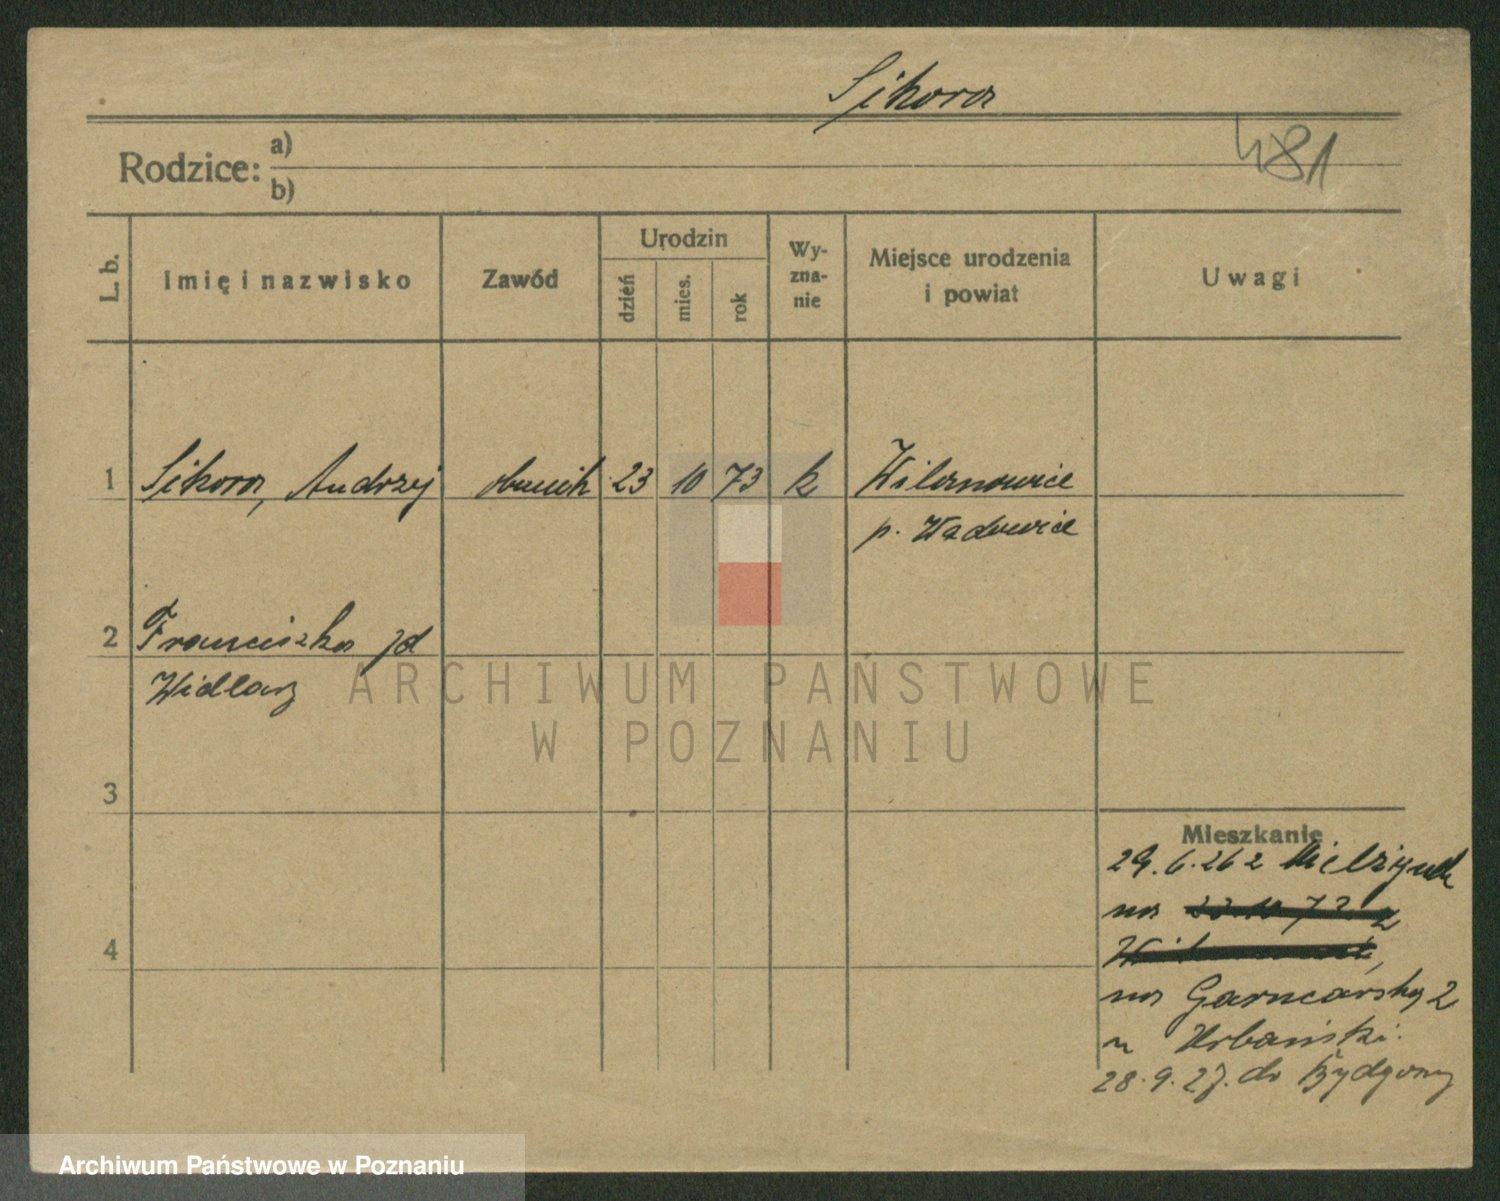 Sikora
481
Rodzice: a)
b)
L. b.
Imię i nazwisko
Zawód
Urodzin
dzień
mies.
rok
Wy-
zna-
nie
Miejsce urodzenia
i powiat
Uwagi
1 Sikora, Andrzej 23 10 73 k Wilamowice
p. Wadowice
2 Franciszka
Widlarz
3
4
Mieszkanie
29.6.26 z
na
na Garncarską 2
u Urbański.
28.9.27. do Bydgoszy
ARCHIWUM PAŃSTWOWE
W POZNANIU
Archiwum Państwowe w Poznaniu